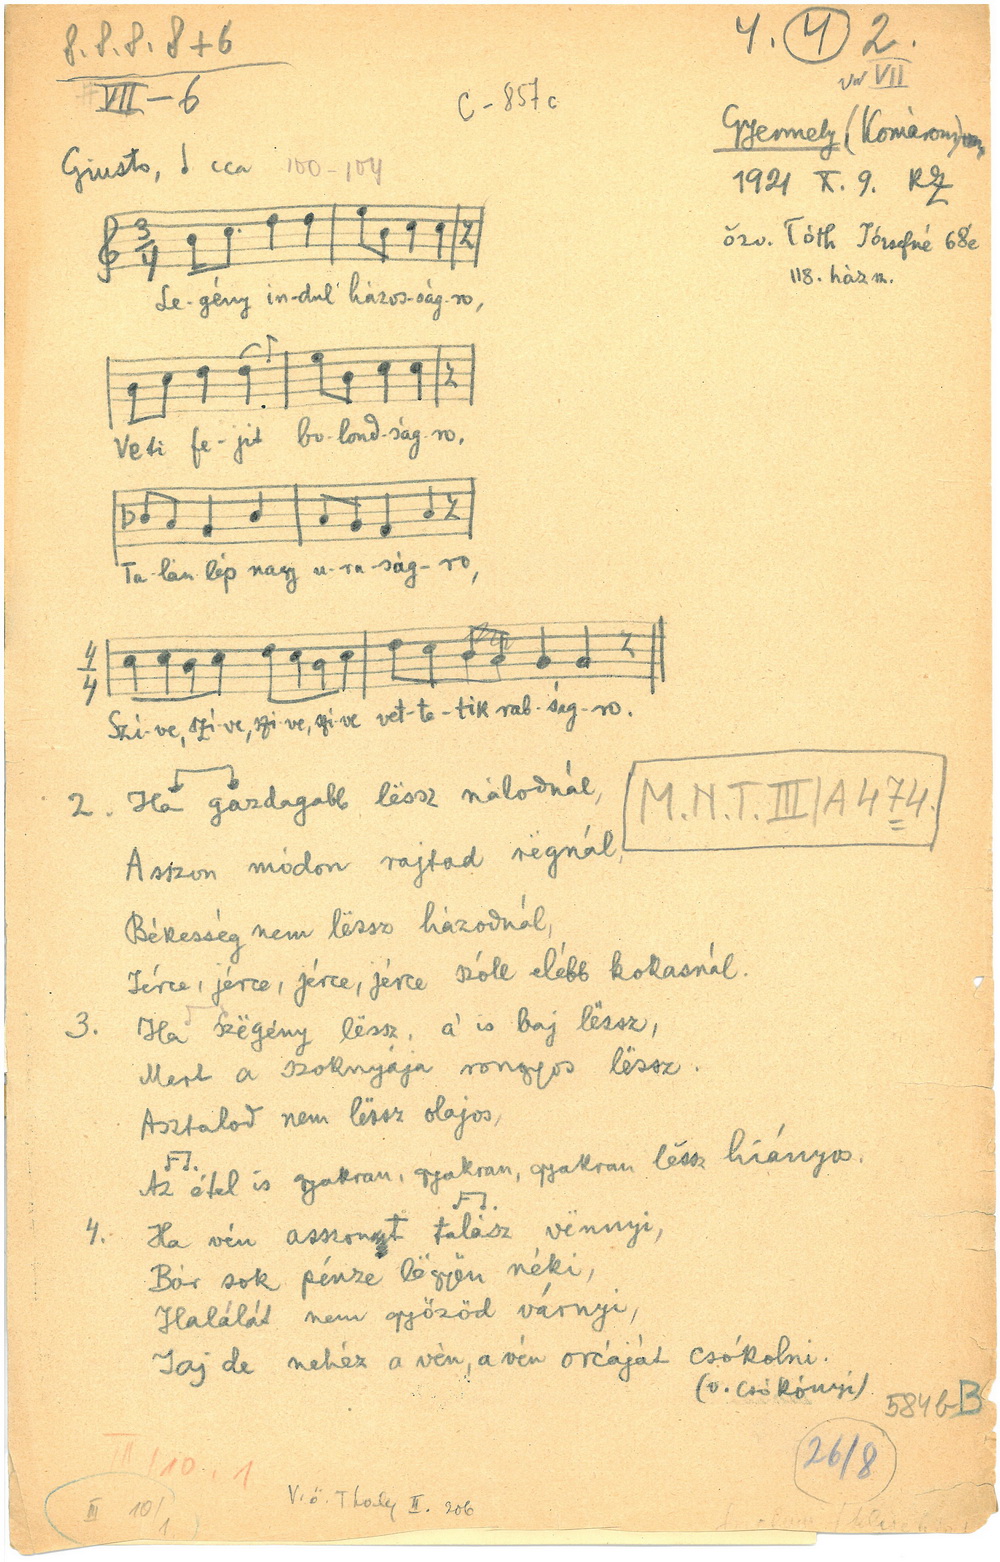 8. 8. 8. 8+6
VII-6
C-857c
4. 4 2.
VII
Gyermely (Komárom)
1921 X. 9. KZ
özv. Tóth Józsefné 68é
118. házsz.
Giusto, cca 100-104
3/4
Le-gény in-dul házos-ság-ro,
Veti fe-jit bo-lond-ság-ro,
Ta-lán lép nagy u-ra-ság-ro,
4/4
Szí-ve, szí-ve, szí-ve, szí-ve vet-te-tik rab-ság-ro.
2. Ha gazdagabb lëssz nálodnál,
M.N.T. III/A 474.
Asszon módon rajtad rëgnál,
Békesség nem lëssz házodnál,
Jérce, jérce, jérce, jérce szóll elébb kokasnál.
3. Ha szëgény lëssz, a' is baj lëssz,
Mert a szoknyája rongyos lëssz.
Asztalod nem lëssz olajos,
Az étel is gyakran, gyakran, gyakran lëssz hiányos.
4. Ha vén asszont talász vënnyi,
Bár sok pénze lëgyën néki,
Halálát nem győzöd várnyi,
Jaj de nehéz a vén, a vén orcáját csókolni.
(v. csókónyi)
584b B
26/8
III/10.1
III 10/1
V.ö. Thaly II. 206